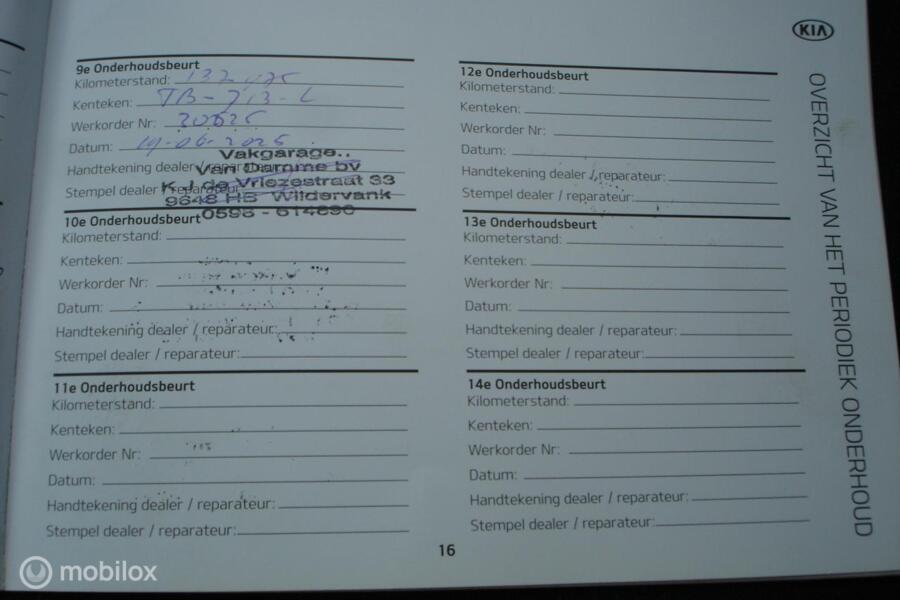 KIA
OVERZICHT VAN HET PERIODIEK ONDERHOUD
9e Onderhoudsbeurt
Kilometerstand: 132
Kenteken: TB-713-L
Werkorder Nr: 30625
Datum: 19-06-2025
Handtekening dealer / reparateur:
Stempel dealer / reparateur:
Vakgarage..
Van Damme bv
K.J. de Vriezestraat 33
9648 HB Wildervank
0598 - 614690
10e Onderhoudsbeurt
Kilometerstand:
Kenteken:
Werkorder Nr:
Datum:
Handtekening dealer / reparateur:
Stempel dealer / reparateur:
11e Onderhoudsbeurt
Kilometerstand:
Kenteken:
Werkorder Nr:
Datum:
Handtekening dealer / reparateur:
Stempel dealer / reparateur:
12e Onderhoudsbeurt
Kilometerstand:
Kenteken:
Werkorder Nr:
Datum:
Handtekening dealer / reparateur:
Stempel dealer / reparateur:
13e Onderhoudsbeurt
Kilometerstand:
Kenteken:
Werkorder Nr:
Datum:
Handtekening dealer / reparateur:
Stempel dealer / reparateur:
14e Onderhoudsbeurt
Kilometerstand:
Kenteken:
Werkorder Nr:
Datum:
Handtekening dealer / reparateur:
Stempel dealer / reparateur:
16
mobilox